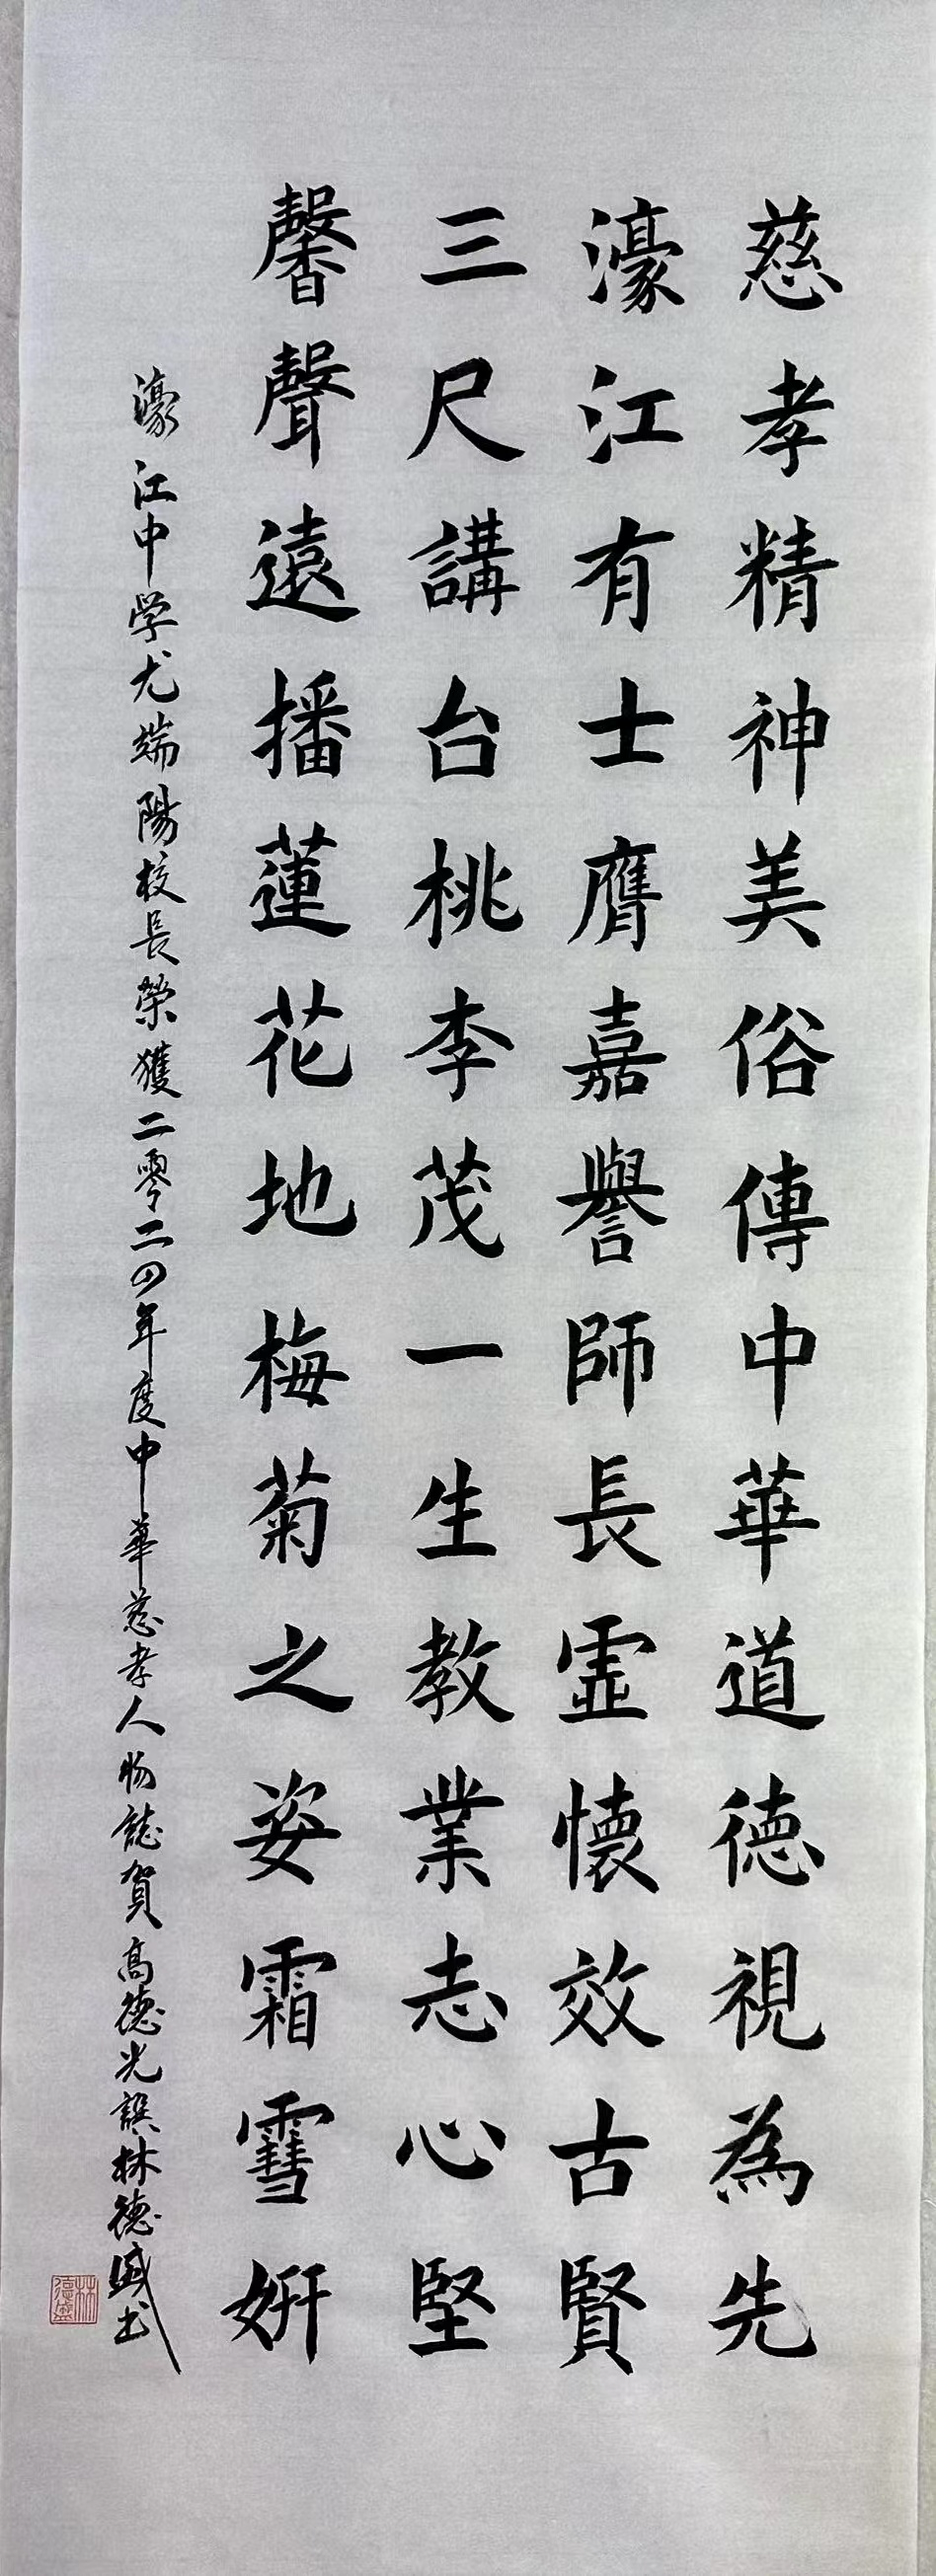 慈孝精神美俗傳中華道德視為先
濠江有士膺嘉譽師長霊懷效古賢
三尺講台桃李茂一生教業志心堅
馨聲遠播蓮花地梅菊之姿霜雪妍
濠江中学尤端陽校長榮獲二零二四年度中華慈孝人物誌賀高德光譔林德盛书
林德盛